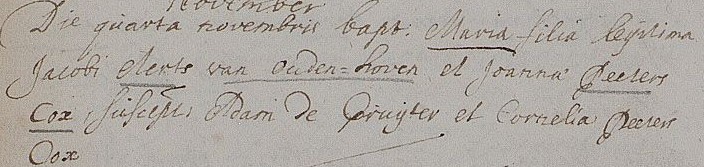 November
Die quarta novembris bapt: Maria filia legitima
Jacobi Aerts van Ouden=hoven et Joanna Peeters
Cox, suscept: Adam de Pruyter et Cornelia Peeters
Cox